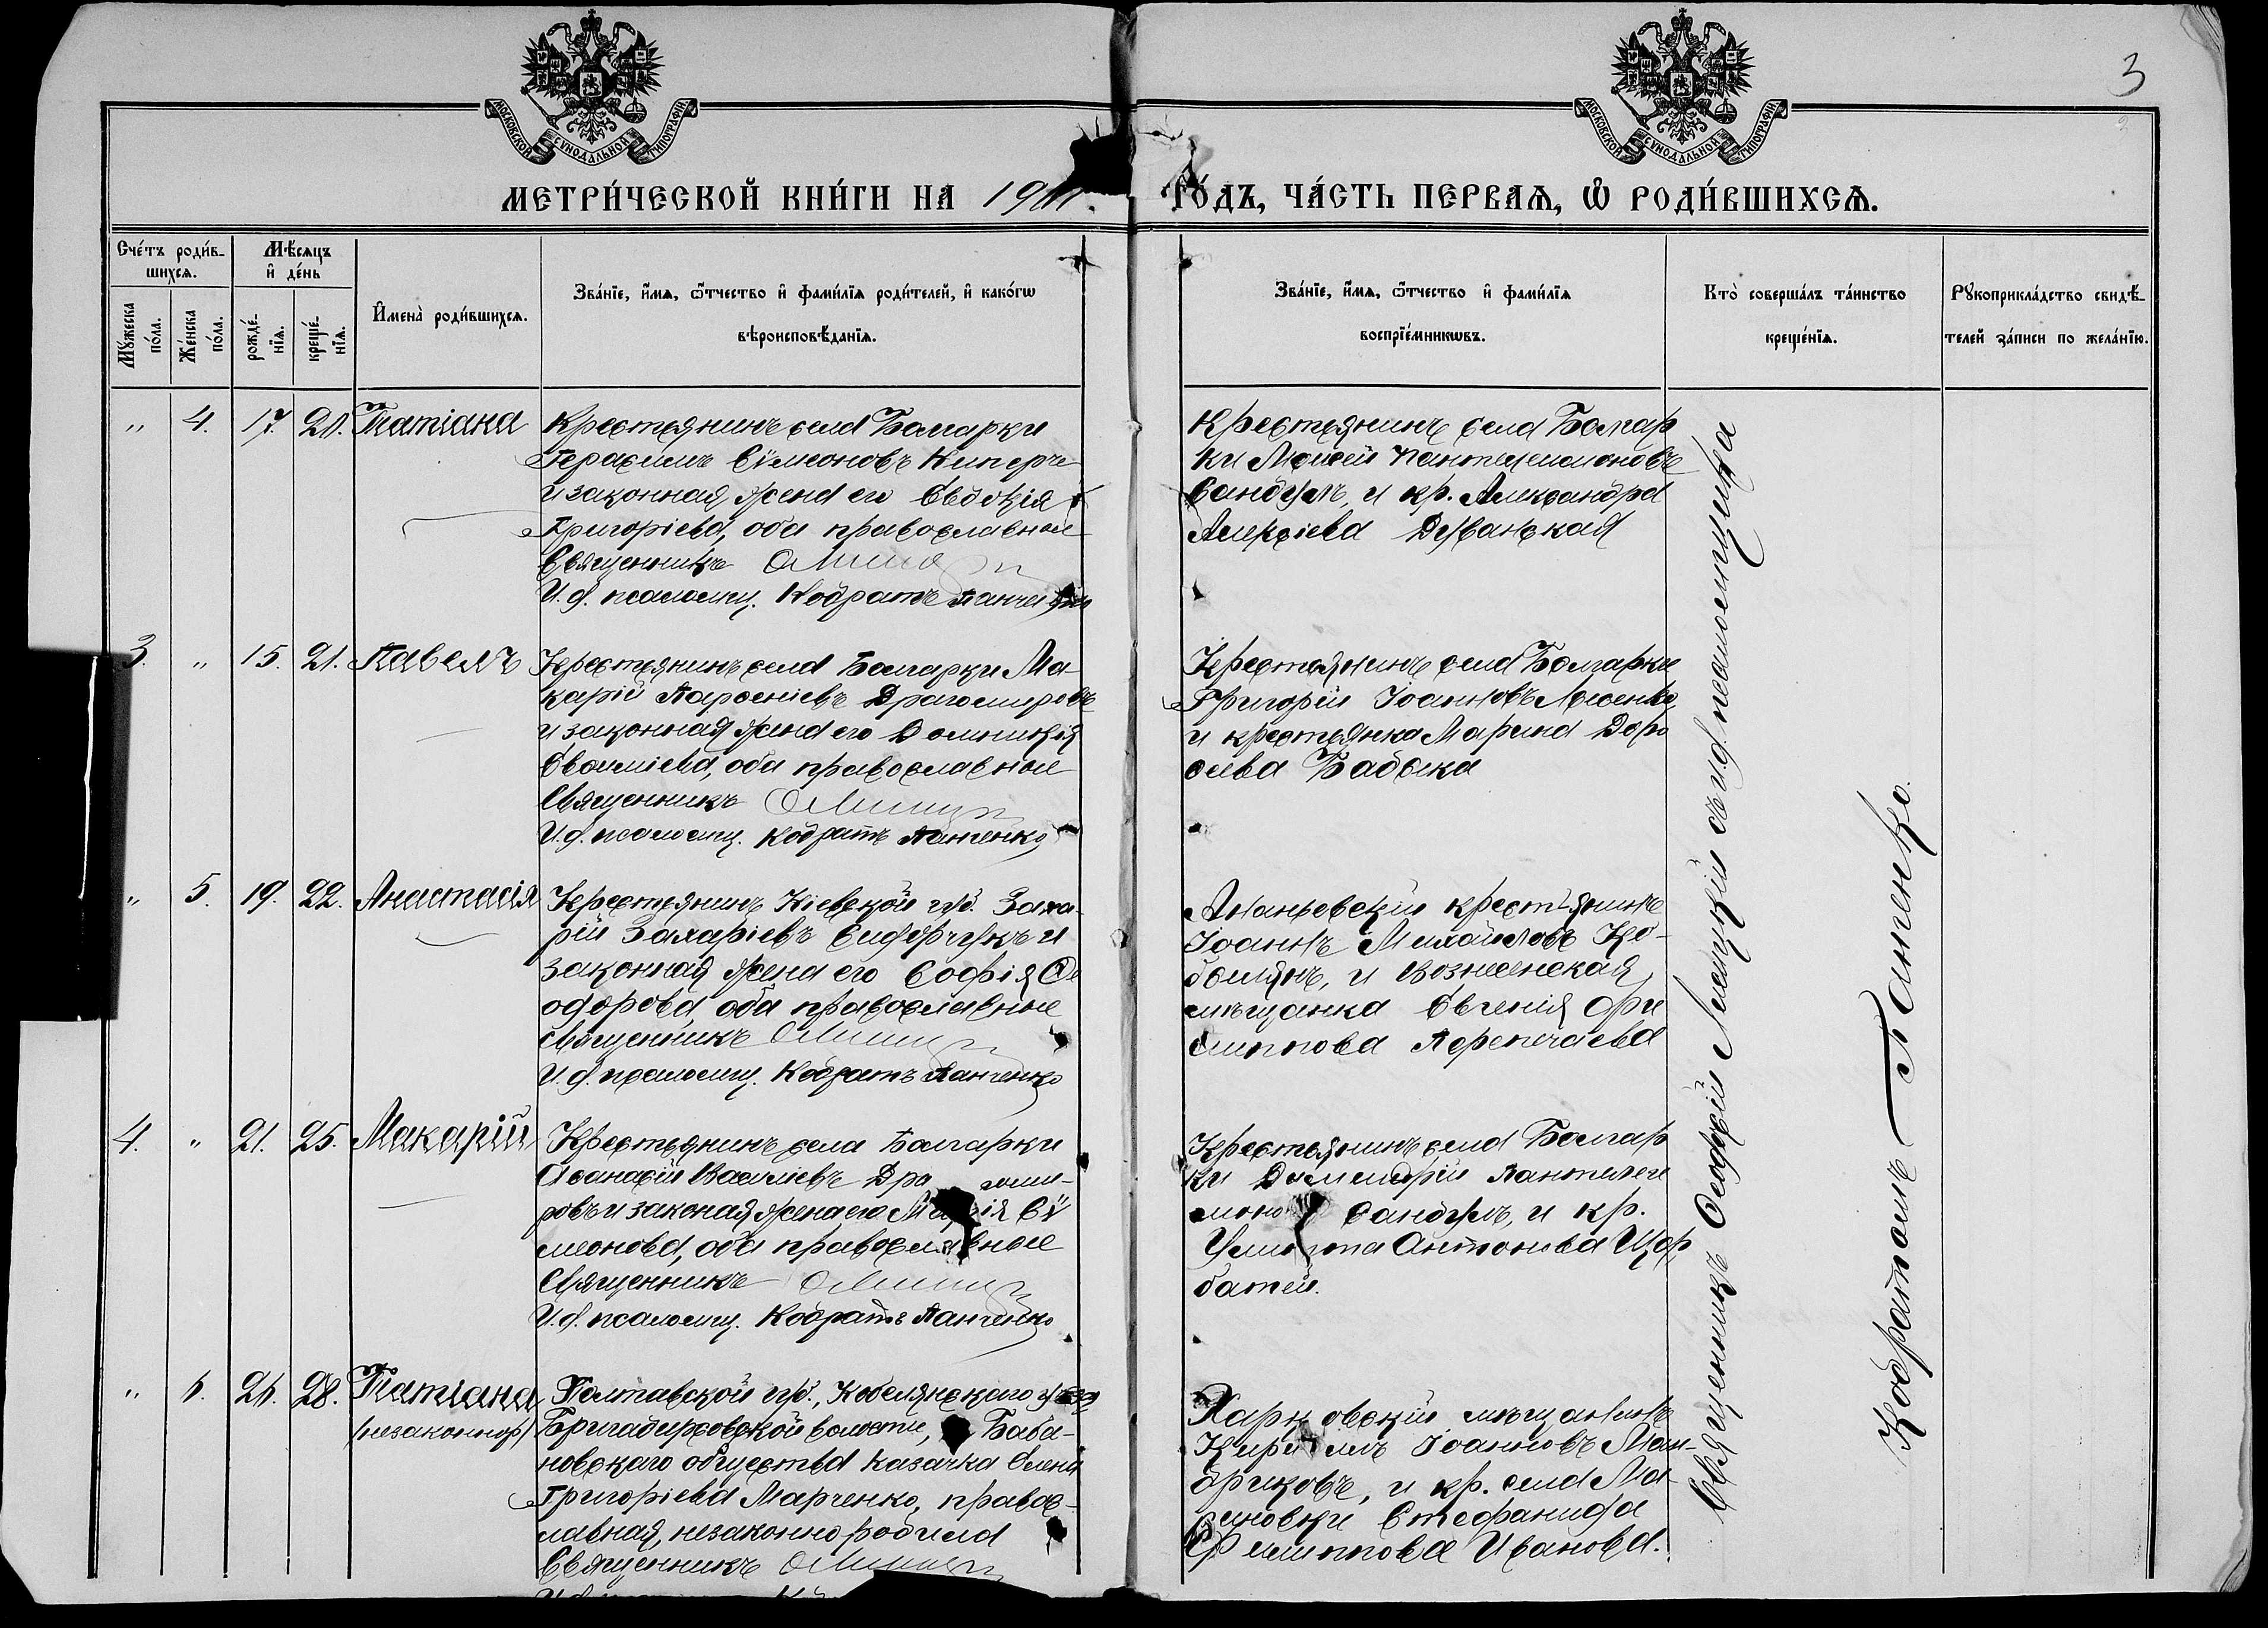 МОСКОВСКОЙ СѴНОДАЛЬНОЙ ТИПОГРАФІИ
МОСКОВСКОЙ СѴНОДАЛЬНОЙ ТИПОГРАФІИ
3
МЕТРИ́ЧЕСКОЙ КНИ́ГИ НА 1911.
ГО́ДЪ, ЧА́СТЬ ПЕРВАѦ, Ѡ҆ РОДИ́ВШИХСѦ.
Сче́тъ роди́в-
шихсѧ.
Мѣ́сѧцъ
и҆ де́нь
Мꙋ́жеска
по́ла.
Же́нска
по́ла.
рожде́-
нїѧ.
креще́-
нїѧ.
И҆мена̀ роди́вшихсѧ.
Зва́нїе, и҆́мѧ, ѻ҆́тчество и҆ фами́лїѧ роди́телей, и҆ како́гѡ
вѣроисповѣ́данїѧ.
Зва́нїе, и҆́мѧ, ѻ҆́тчество и҆ фами́лїѧ
воспрїе́мникѡвъ.
Кто̀ соверша́лъ та́инство
креще́нїѧ.
Рꙋкоприкла́дство свидѣ́-
телей за́писи по жела́нїю.
" 4. 17. 20. Татіана
Крестьянинъ села Болгарки
Герасимъ Сѵмеоновъ Киперче
и законная жена его Евдокія
Григоріева, оба православные
Священникъ
И. д. псаломщ. Кодратъ Панченко
Крестьянинъ села Болгар
ки Моисей Пантелеимоновъ
Сандулъ, и кр. Александра
Алексіева Дуванская
3. " 15. 21. Павелъ
Крестьянинъ села Болгарки Ма-
карій Парѳеніевъ Драгомировъ
и законная жена его Домникія
Евѳиміева, оба православные
Священникъ
И. д. псаломщ. Кодратъ Панченко
Крестьянинъ села Болгарки
Григорій Іоанновъ
и крестьянка Марина Доро
ѳеева
" 5. 19. 22. Анастасія
Крестьянинъ Кіевской губ. Заха-
рій Захаріевъ Сидорчукъ и
законная жена его Софія Ѳе
одорова, оба православные
Священникъ
И. д. псаломщ. Кодратъ Панченко
Ананьевскій крестьянинъ
Іоаннъ Михайловъ Ко-
, и Вознесенская
мѣщанка Евгенія Фри
липпова Перепечаева
4. " 21. 25. Макарій
Крестьянинъ села Болгарки
Аѳанасій Василіевъ Драгоми-
ровъ и законая жена его Марія Сѵ
меонова, оба православные
Священникъ
И. д. псаломщ. Кодратъ Панченко
Крестьянинъ села Болгар
ки Димитрій Пантелеи
моновъ Сандулъ, и кр.
Антонова Щер
батей.
" 6. 26. 28. Татіана
(незаконнор)
Полтавской губ., Кобелянскаго уѣзда
Бригадировской волости, Баба-
новскаго общества казачка Елена
Григоріева Марченко, правос-
лавная, незаконно родила
Священникъ
Харьковскій мѣщанинъ
Кириллъ Іоанновъ Ман-
дриковъ, и кр. села Ма
риновки Стефанида
Филиппова Иванова.
Священникъ и. д. псаломщика
Кодратомъ Панченко.